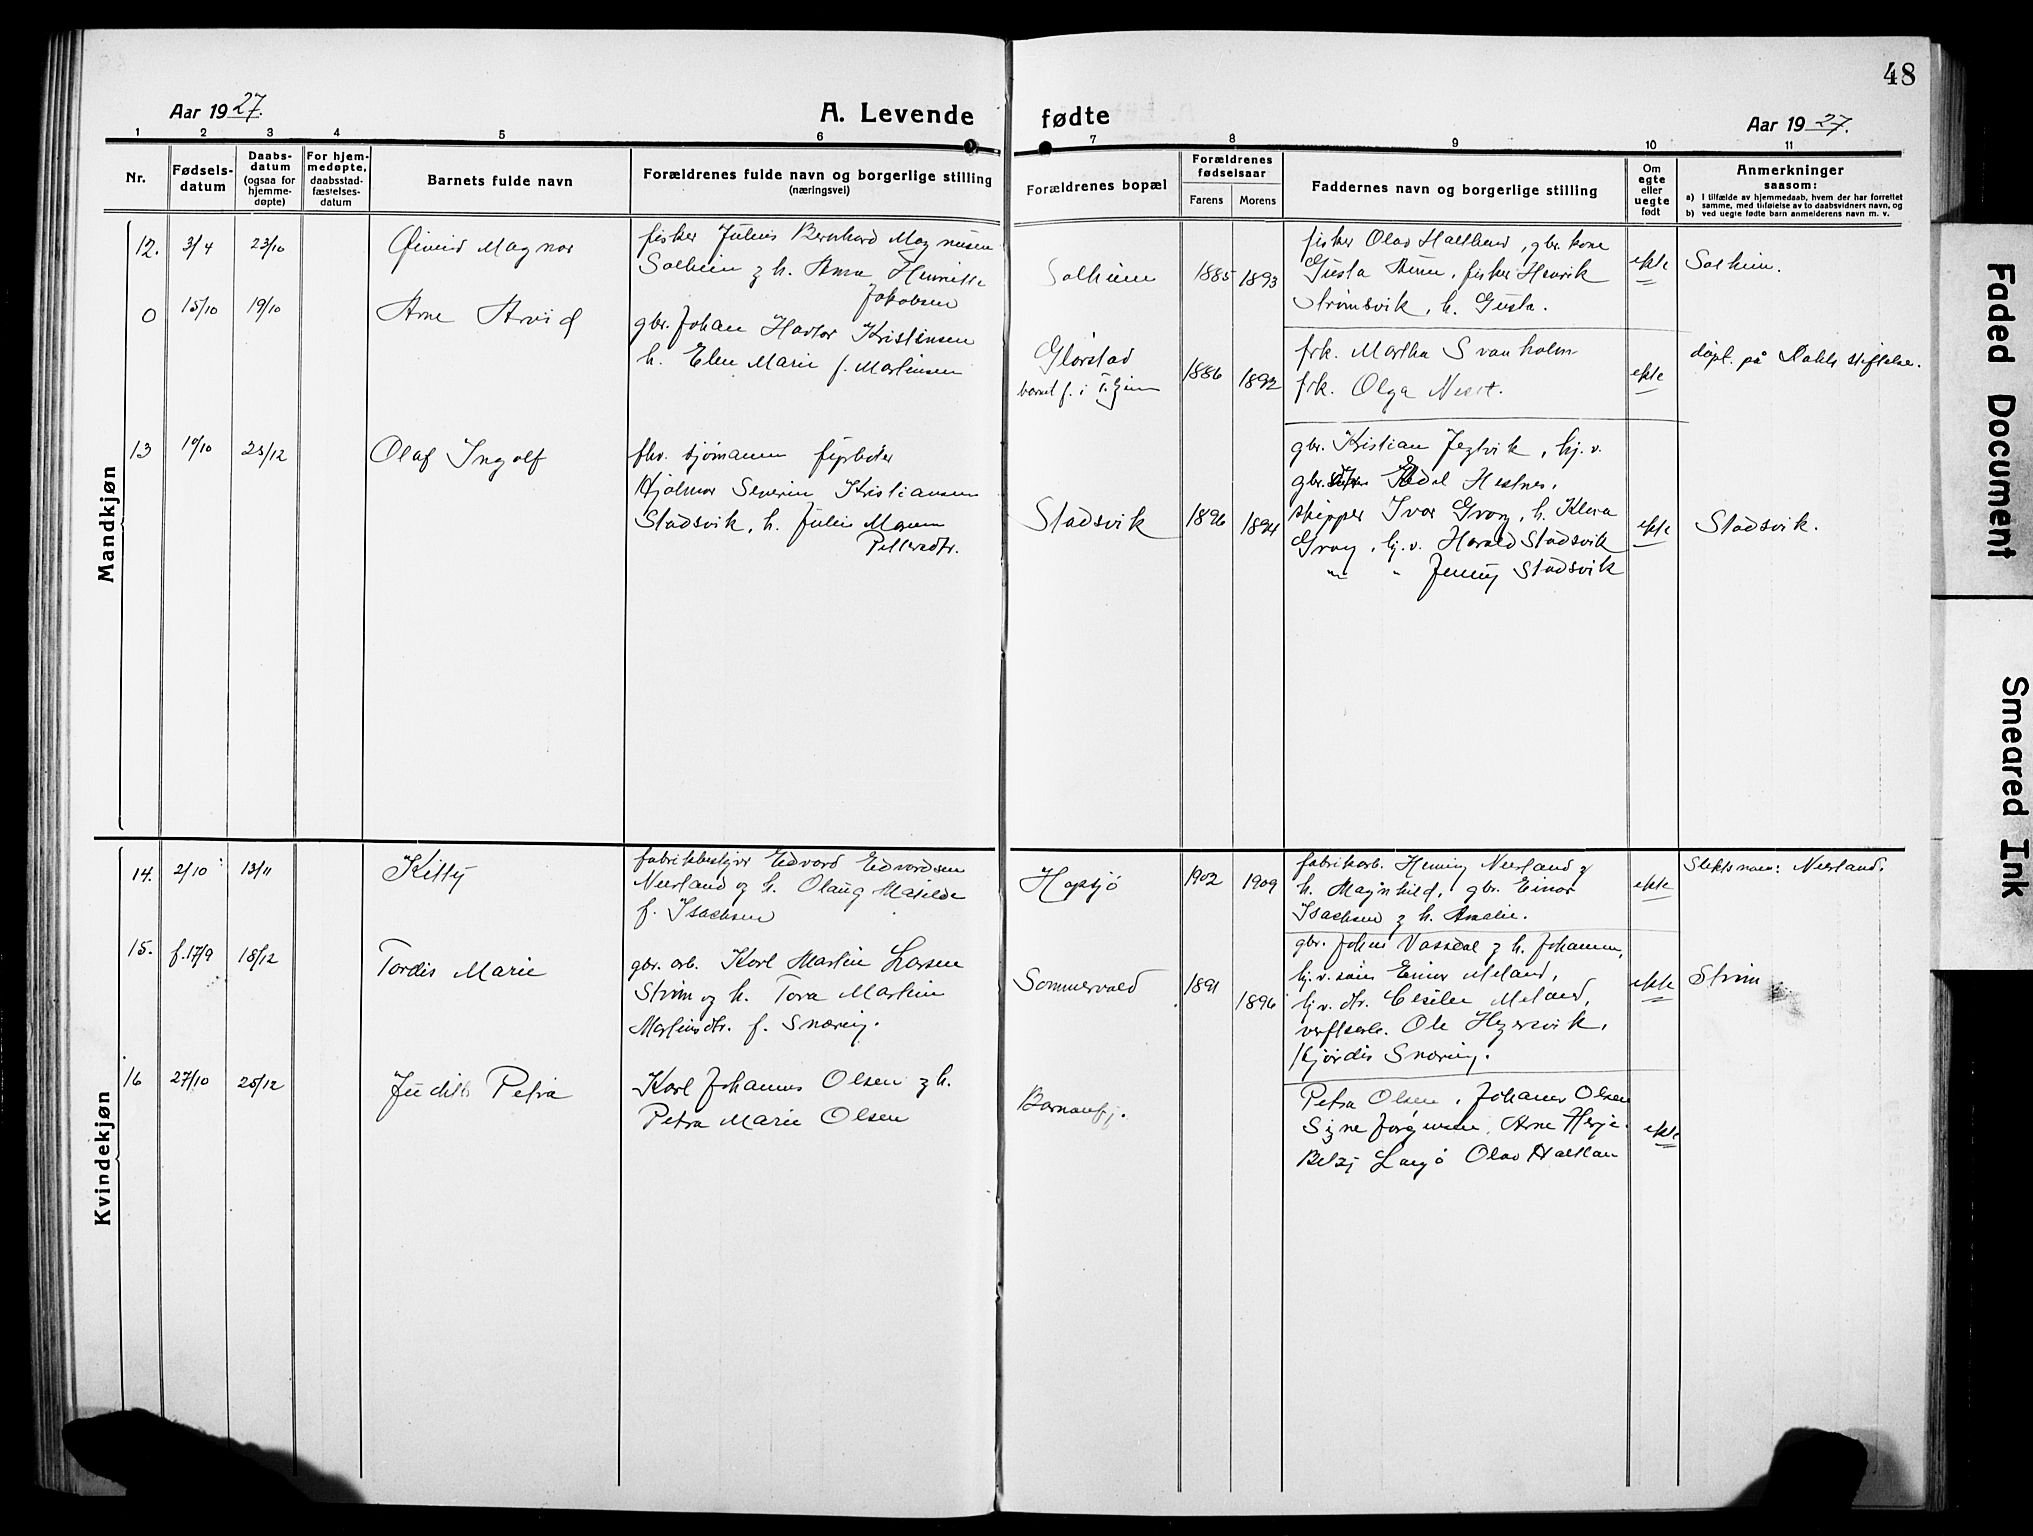 48
Aar 1927.
A. Levende
fødte
Aar 1927.
1 2 3 4 5 6 7 8 9 10 11
Nr.
Fødsels-
datum
Daabs-
datum
(ogsaa for
hjemme-
døpte)
For hjem-
medøpte,
daabsstad-
fæstelses-
datum
Barnets fulde navn
Forældrenes fulde navn og borgerlige stilling
(næringsvei)
Forældrenes bopæl
Forældrenes
fødselsaar
Farens Morens
Faddernes navn og borgerlige stilling
Om
egte
eller
uegte
født
Anmerkninger
saasom:
a) I tilfælde av hjemmedaab, hvem der har forrettet
samme, med tilføielse av to daabsvidners navn, og
b) ved uegte fødte barn anmelderens navn m. v.
Mandkjøn
12. 3/4 23/10 Øivind Magnar
fisker Julius Bernhard Magnussen
Solheim og h. Anna
Jakobsen
Solheim 1885 1893
fisker Olav , gbr. kone
Gusta , fisker Henrik
Strømsvik, h. Gusta.
ekte Solheim.
0 15/10 19/10 Arne Arvid
gbr. Johan Kristensen
h. Elen Marie f. Martinsen
Glørstad
barnet f. i
1886 1892
frk. Martha Svanholm
frk. Olga
ekte døpt på stiftelse.
13 10/10 25/12 Olaf Ingolf
fhv. sjømann fyrbøter
Hjalmar Severin Kristiansen
Stadsvik, h. Julie
Pettersdtr.
Stadsvik 1896 1894
gbr. Kristian , hj.v.
gbr. Hestnes,
skipper Ivar , h. Klara
, hj.v. Harald Stadsvik
" " Jenny Stadsvik
ekte Stadsvik.
Kvindekjøn
14. 2/10 13/11 Kitty
fabrikkbestyrer Edvard Edvardsen
Neerland og h. Olaug Matilde
f. Isachsen
Hopsjø 1902 1909
fabrikarb. Henning Neerland og
h. Magnhild, gbr. Einar
Isachsen og h. Amalie.
ekte Slektsnavn: Neerland.
15. f. 17/9 18/12 Tordis Marie
gbr. arb. Karl Martin Larsen
Strøm og h. Tora Martine
Martinsdtr. f. Snæring.
Sommervold 1891 1896
gbr. Johan Vassdal og h. Johanna,
hj.v. søn Einar Meland,
hj.v. dtr. Cesilie Meland,
verftsarb. Ole ,
Hjørdis Snæring.
ekte Strøm
16 27/10 25/12 Judith Petra
Karl Johannes Olsen og h.
Petra Marie Olsen
Barmanfj.
Petra Olsen, Johanes Olsen
Signe Jørgensen, Arne Herje.
Betzy Olav
ekte
Faded Document
Smeared Ink